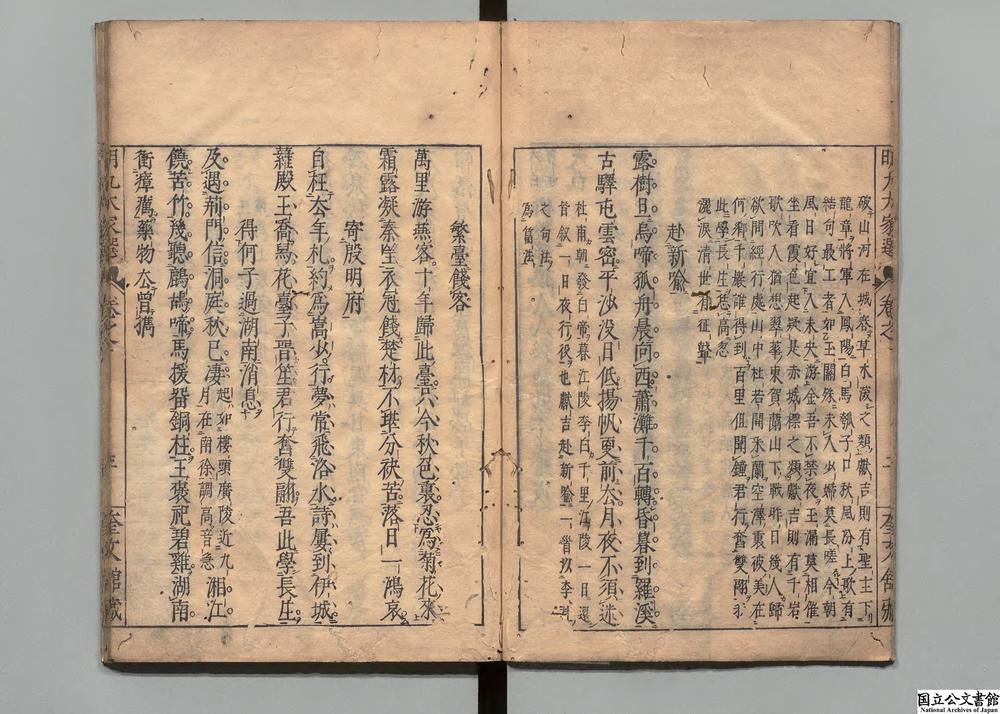 明九大家選 卷之一 奎文館藏
破山河在城春草木深之類獻吉則有聖主下
龍章將軍入鳳陽白馬瓠子口秋風汾上歌有
結句最工者如玉關殊未入少婦莫長嗟今朝
風日好宜入未央游金吾不禁夜玉漏莫相催
坐看霞色起疑是赤城標之類獻吉則有千岩
欲吹入猶想翠華東賀蘭山下戰昨日幾人歸
欲問經行處山中杜若間采蘭空澤裏彼美在
何鄉千巖誰得到百里但聞鐘君行奮雙翮永
此學長生愁高忽
灑淚清世有征鼙
赴新喻
露樹旦烏啼孤舟晨向西蕭灘千百轉昏暮到羅溪
古驛屯雲密平沙沒日低揚帆更前去月夜不須迷
杜南朝發白帝暮江陵李白千里江陵一日還
皆叙一日夜行役也獻吉赴新喻一首以李
之句法
爲篇法
繁臺餞客
萬里游燕客十年歸此臺只今秋色裏忍爲菊花來
霜露凝秦衣冠餞楚材不堪分袂苦落日一鴻哀
寄殷明府
自枉去年札約爲嵩少行夢常飛洛水詩屢到伊城
雜殿王喬舄花臺子晉笙君行奮雙翮吾此學長生
得何子過湖南消息
及遇荊門信洞庭秋已凄
起如樓頭廣陵近九
月在南徐調高音急
湘江
饒苦竹聽鷓鴣啼馬援畱銅柱王褒祀碧雞湖南
衝瘴癘藥物去曾攜
明九大家選 卷之一 奎文館藏
国立公文書館
National Archives of Japan